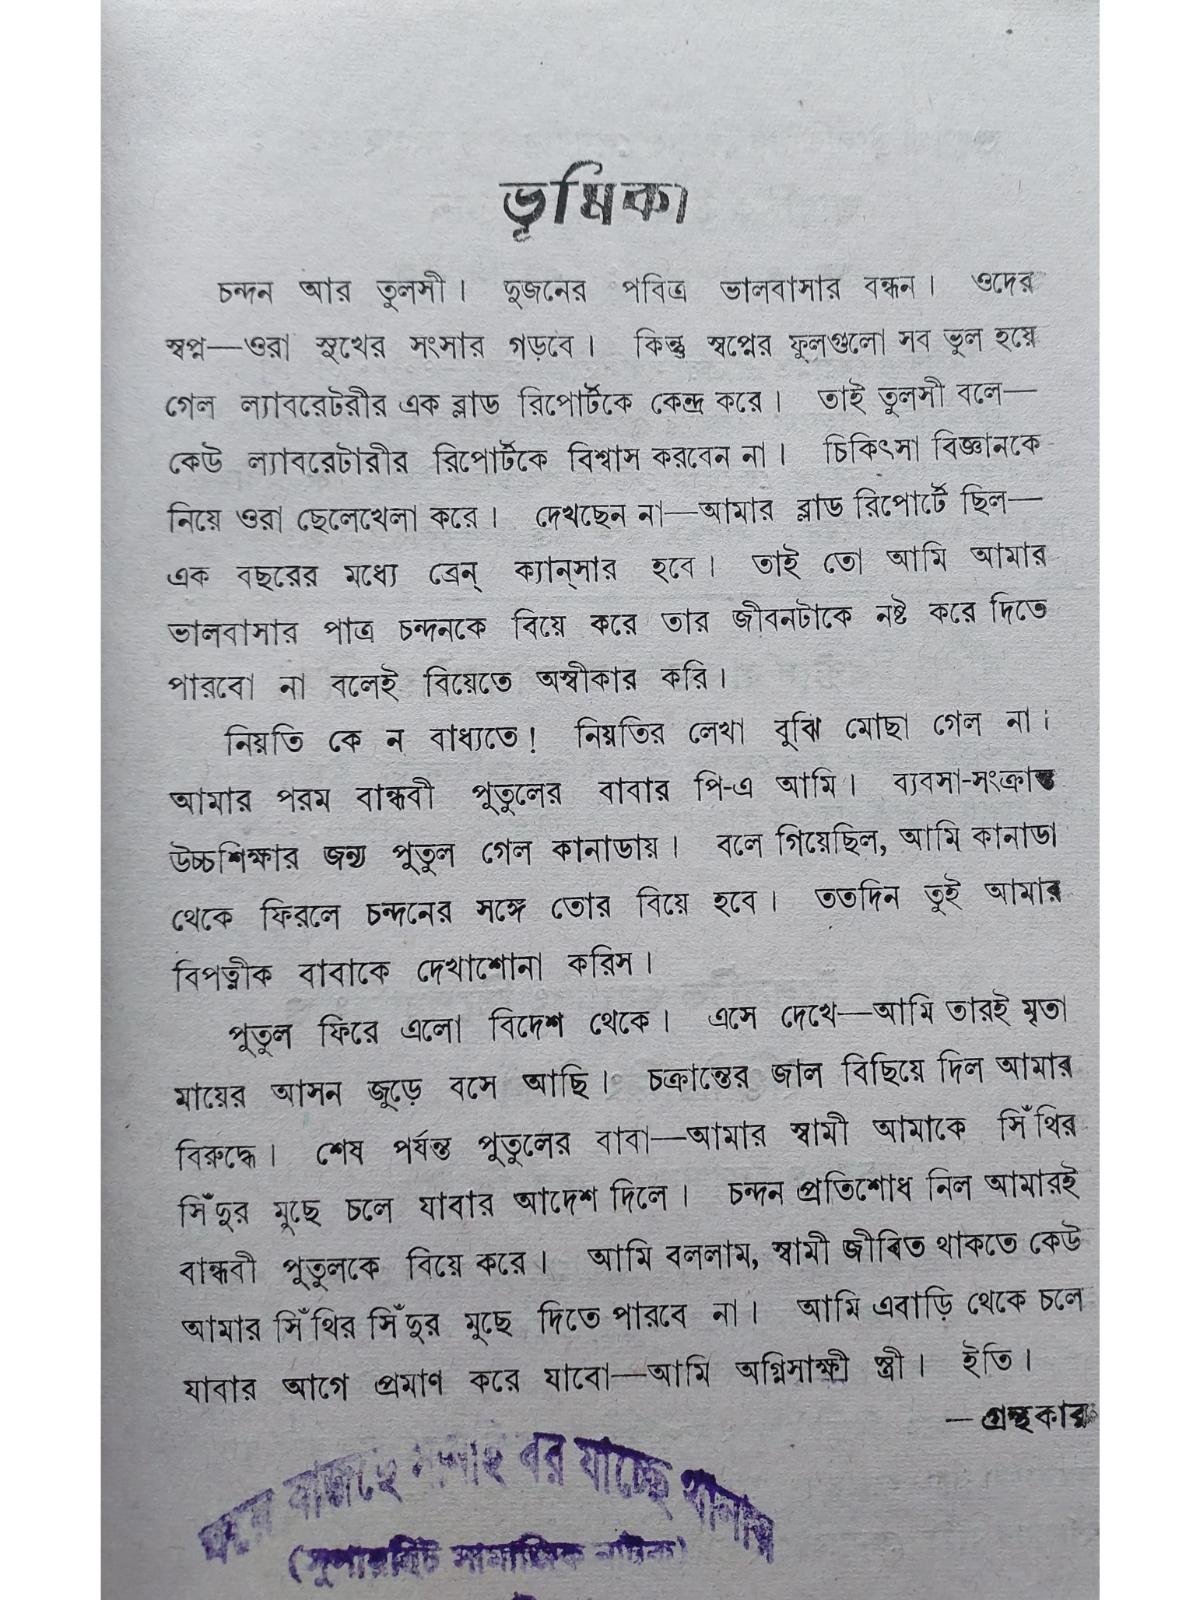 ভূমিকা
চন্দন আর তুলসী। দুজনের পবিত্র ভালবাসার বন্ধন। ওদের
স্বপ্ন—ওরা সুখের সংসার গড়বে। কিন্তু স্বপ্নের ফুলগুলো সব ভুল হয়ে
গেল ল্যাবরেটরীর এক ব্লাড রিপোর্টকে কেন্দ্র করে। তাই তুলসী বলে—
কেউ ল্যাবরেটারীর রিপোর্টকে বিশ্বাস করবেন না। চিকিৎসা বিজ্ঞানকে
নিয়ে ওরা ছেলেখেলা করে। দেখছেন না—আমার ব্লাড রিপোর্টে ছিল—
এক বছরের মধ্যে ব্রেন্ ক্যান্‌সার হবে। তাই তো আমি আমার
ভালবাসার পাত্র চন্দনকে বিয়ে করে তার জীবনটাকে নষ্ট করে দিতে
পারবো না বলেই বিয়েতে অস্বীকার করি।
নিয়তি কে ন বাধ্যতে! নিয়তির লেখা বুঝি মোছা গেল না।
আমার পরম বান্ধবী পুতুলের বাবার পি-এ আমি। ব্যবসা-সংক্রান্ত
উচ্চশিক্ষার জন্য পুতুল গেল কানাডায়। বলে গিয়েছিল, আমি কানাডা
থেকে ফিরলে চন্দনের সঙ্গে তোর বিয়ে হবে। ততদিন তুই আমার
বিপত্নীক বাবাকে দেখাশোনা করিস।
পুতুল ফিরে এলো বিদেশ থেকে। এসে দেখে—আমি তারই মৃতা
মায়ের আসন জুড়ে বসে আছি। চক্রান্তের জাল বিছিয়ে দিল আমার
বিরুদ্ধে। শেষ পর্যন্ত পুতুলের বাবা—আমার স্বামী আমাকে সিঁথির
সিঁদুর মুছে চলে যাবার আদেশ দিলে। চন্দন প্রতিশোধ নিল আমারই
বান্ধবী পুতুলকে বিয়ে করে। আমি বললাম, স্বামী জীবিত থাকতে কেউ
আমার সিঁথির সিঁদুর মুছে দিতে পারবে না। আমি এবাড়ি থেকে চলে
যাবার আগে প্রমাণ করে যাবো—আমি অগ্নিসাক্ষী স্ত্রী। ইতি।
—গ্রন্থকার
বাজছে সানাই বর যাচ্ছে থানায়
(সুপারহিট সামাজিক নাটক)